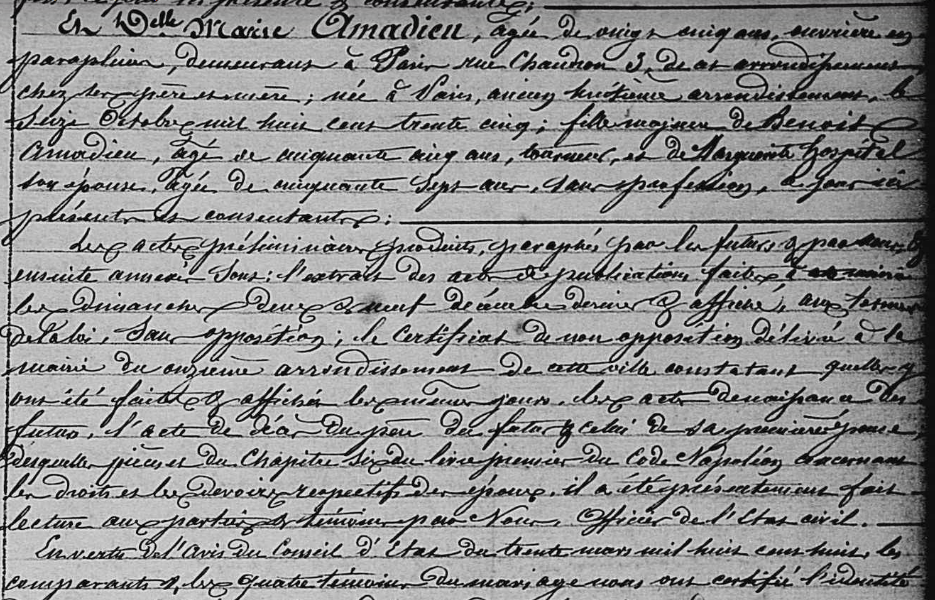 présence & consentante;
Et Delle Marie Amadieu, agée de vingt cinq ans, ouvrière en
parapluies, demeurant à Paris rue Chaudron 3, de cet arrondissement
chez ses père et mère; née à Paris, ancien huitième arrondissement, le
seize Octobre mil huit cent trente cinq; fille majeure de Benoit
Amadieu, âgé de cinquante cinq ans, tourneur, et de Marguerite Hospital
son épouse, âgée de cinquante sept ans, sans profession, à ce jour ici
présents et consentants;
Les actes préliminaires produits, paraphés par les futurs & par nous, &
ensuite annexés sont: l'extrait des actes de publications faites à cette mairie
les dimanches deux & neuf décembre dernier & affiché, aux termes
de la loi, sans opposition; le certificat de non opposition délivré à la
mairie du onzième arrondissement de cette ville constatant qu'elles y
ont été faites & affichées les mêmes jours. les actes de naissance des
futurs. l'acte de décès du père du futur & celui de sa première épouse,
desquelles pièces et du Chapitre six du livre premier du Code Napoléon concernant
les droits et les devoirs respectifs des époux, il a été présentement fait
lecture aux parties & témoins par Nous, Officier de l'Etat civil.
En vertu de l'avis du Conseil d'Etat du trente mars mil huit cent huit, les
comparants & les quatre témoins du mariage nous ont certifié l'identité